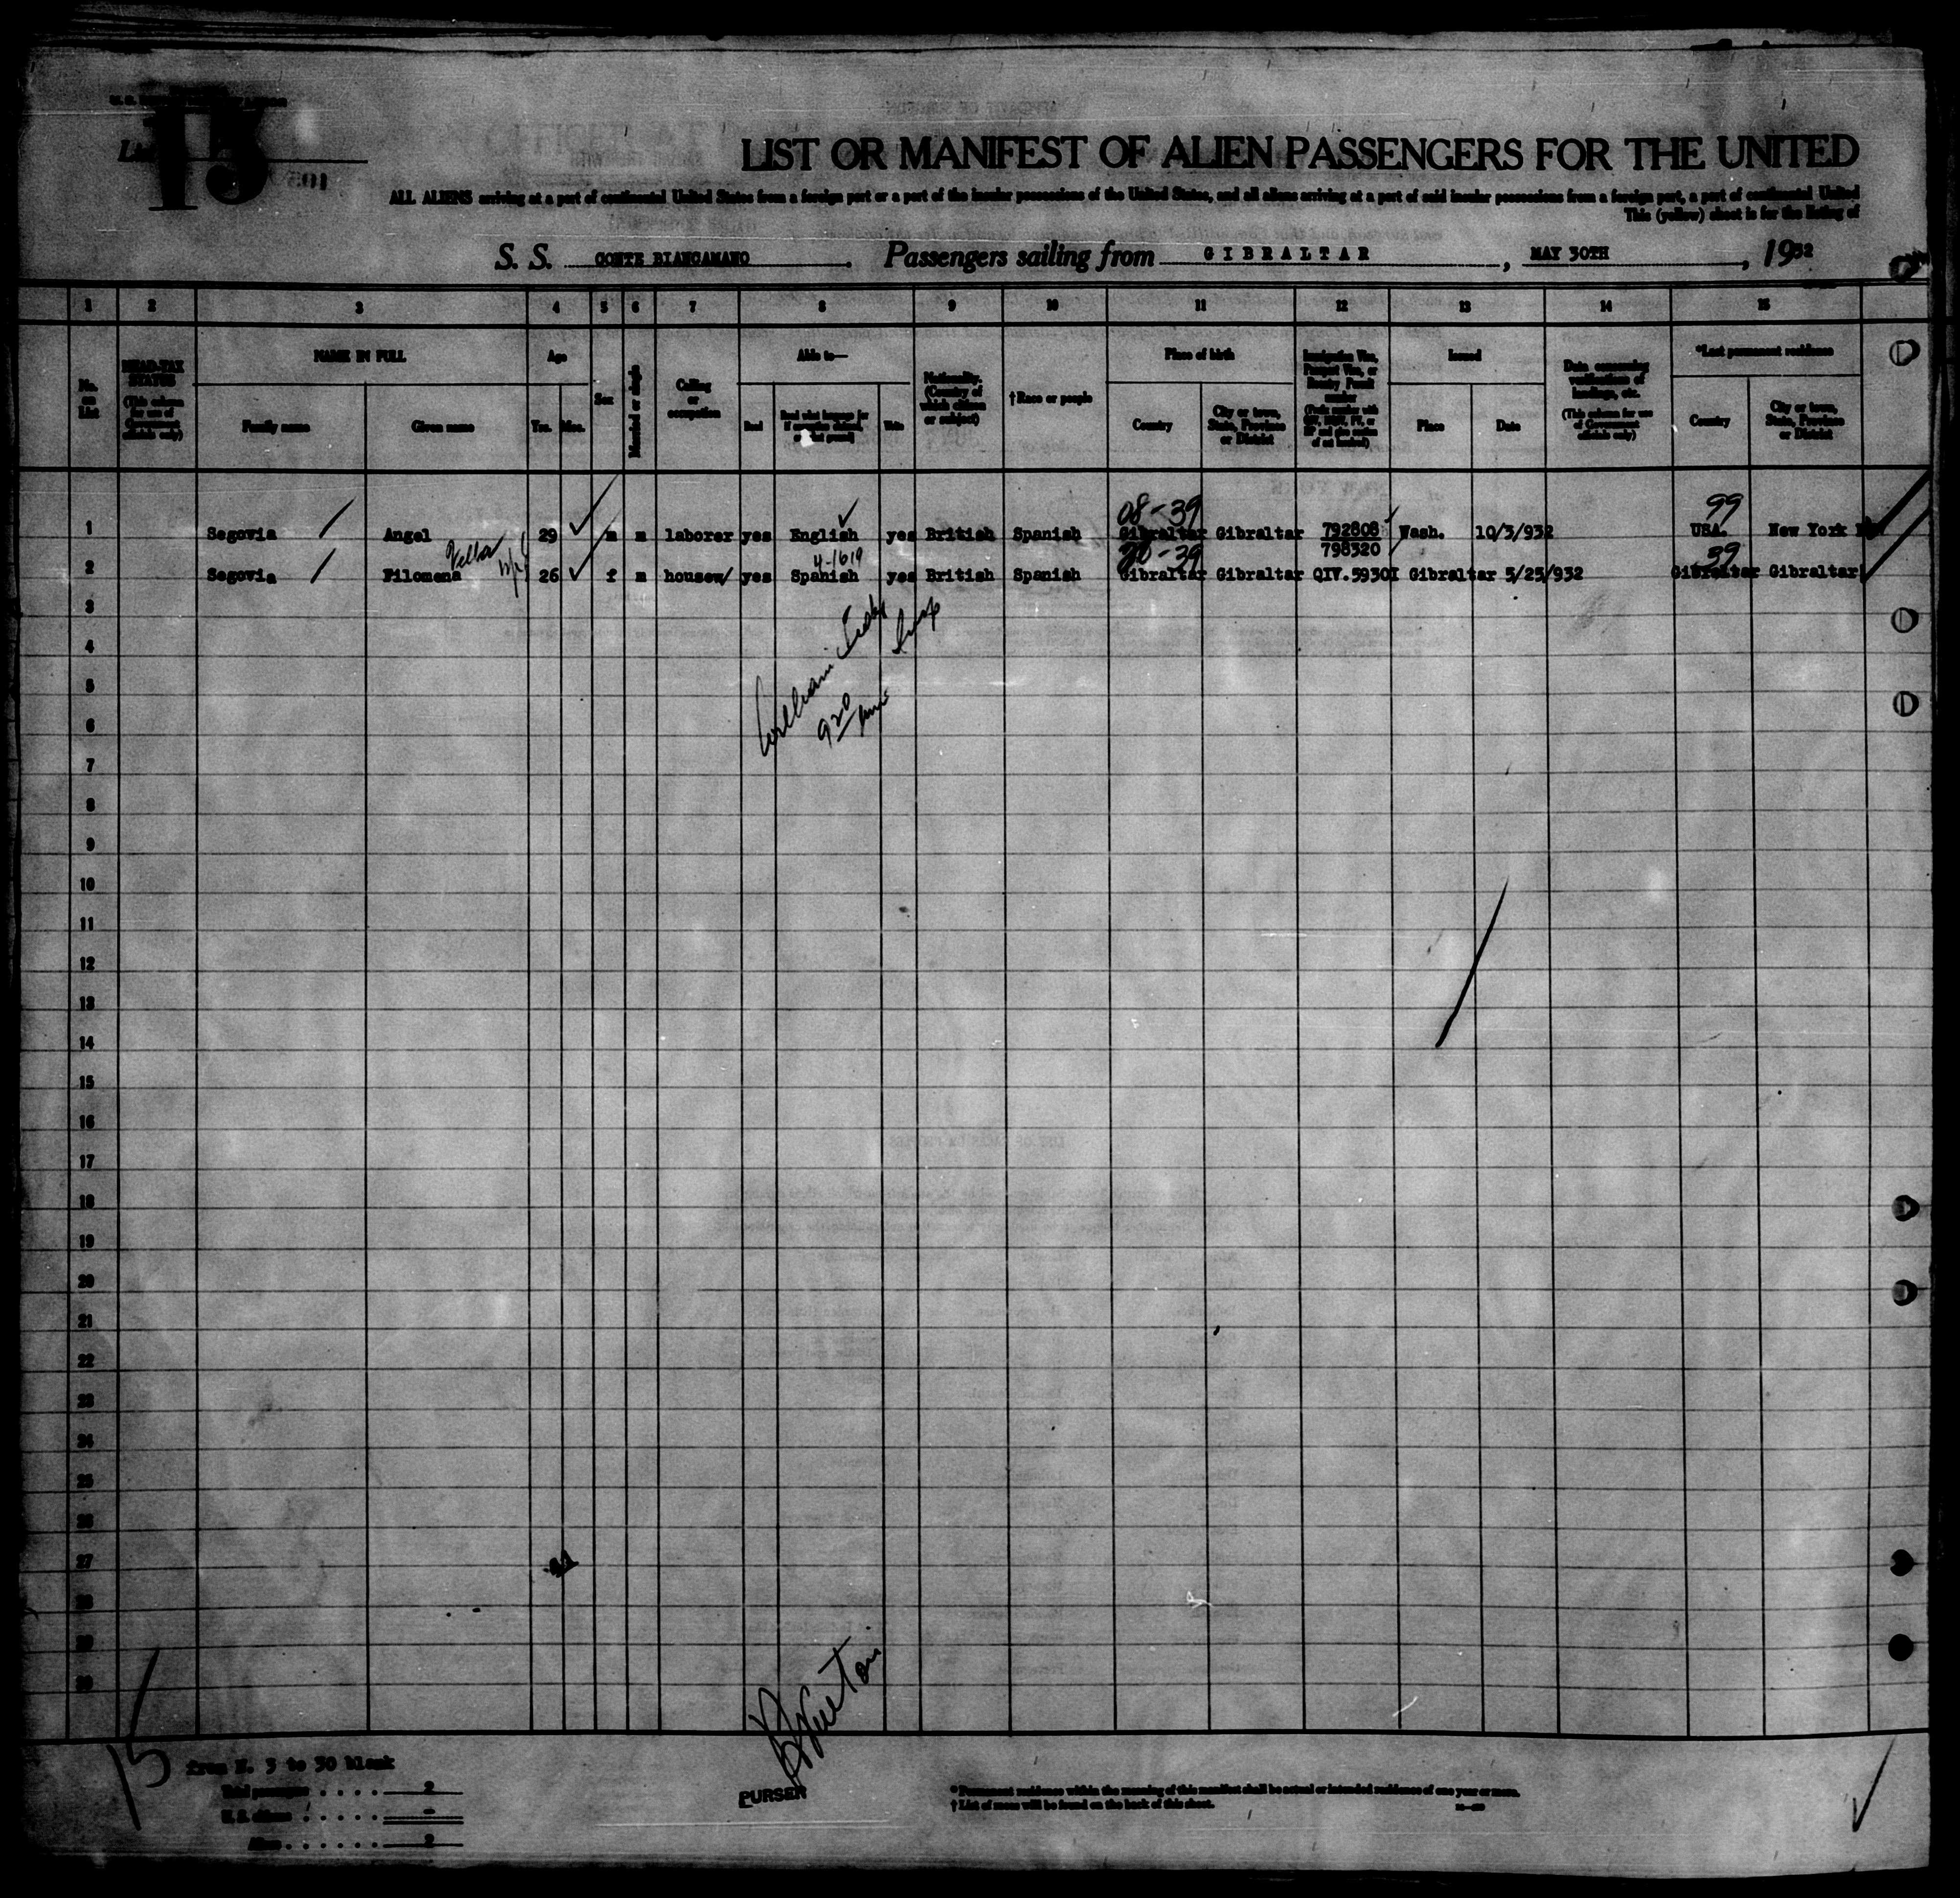 List 13
LIST OR MANIFEST OF ALIEN PASSENGERS FOR THE UNITED
ALL ALIENS arriving at a port of continental United States from a foreign port or a port of the insular possessions of the United States, and all aliens arriving at a port of said insular possessions from a foreign port, a port of continental United
This (yellow) sheet is for the listing of
S. S. CONTE BIANCAMANO . Passengers sailing from GIBRALTAR , MAY 30TH , 1932
1 2 3 4 5 6 7 8 9 10 11 12 13 14 15
No. on List
HEAD-TAX STATUS (This column for use of Government officials only)
NAME IN FULL
Family name Given name
Age
Yrs. Mos.
Sex
Married or single
Calling or occupation
Able to—
Read Read what language [or if exemption claimed, on what ground] Write
Nationality. (Country of which citizen or subject)
†Race or people
Place of birth
Country City or town, State, Province or District
Immigration Visa, Passport Visa, or Reentry Permit number
Issued
Place Date
Data concerning verifications of landings, etc. (This column for use of Government officials only)
*Last permanent residence
Country City or town, State, Province or District
08-39 99
1 Segovia Angel 29 m m laborer yes English yes British Spanish Gibraltar Gibraltar 792808 Wash. 10/3/932 USA. New York
798320
4-1619 39
2 Segovia Filomena 26 f m housew/ yes Spanish yes British Spanish Gibraltar Gibraltar QIV.59301 Gibraltar 5/25/932 Gibraltar Gibraltar
3
4
5
6
7
8
9
10
11
12
13
14
15
16
17
18
19
20
21
22
23
24
25
26
27
28
29
30
William
920
15
from N. 3 to 30 blank
Total passengers . . . . 2
U. S. citizens . . . . . –
Aliens . . . . . . 2
PURSER
*Permanent residence within the meaning of this manifest shall be actual or intended residence of one year or more.
†List of races will be found on the back of this sheet.